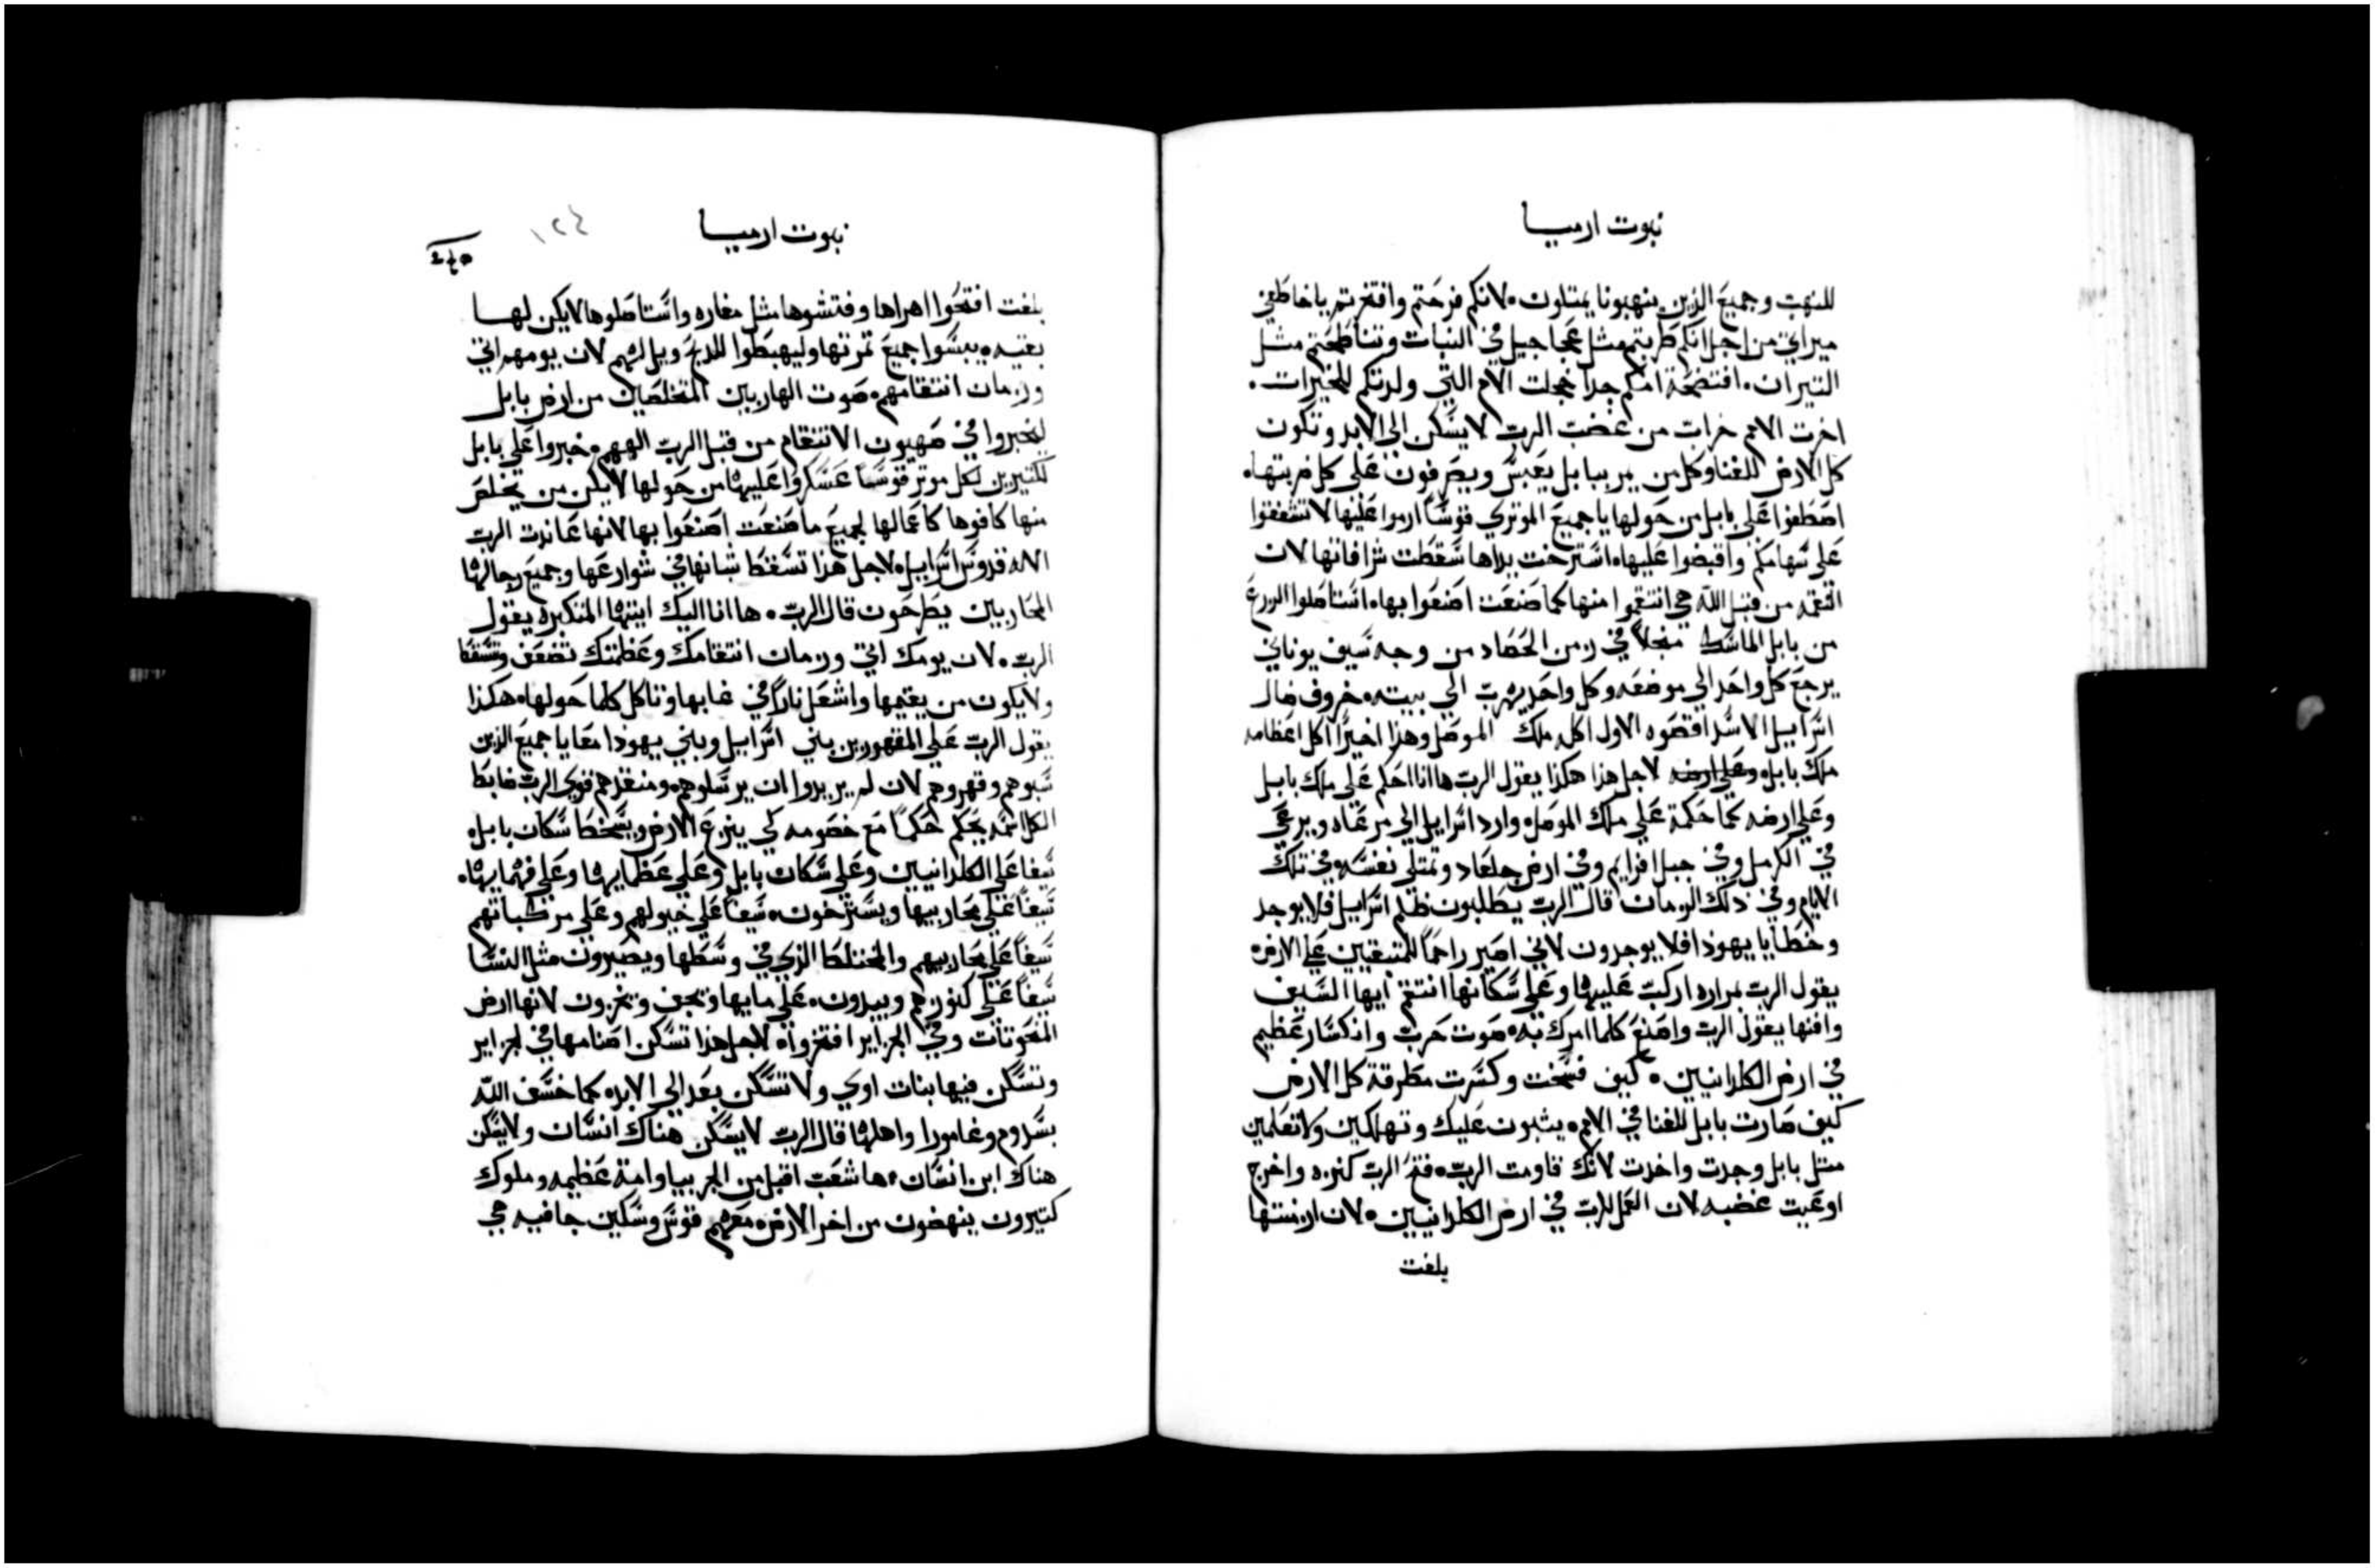 نبوت ارميا
للنهب وجميع الذين ينهبونا يمتلون ٠ لانكم فرحتم وافتخرتم ياخاطفي
ميراتي من اجل انكم طربتم مثل عجاجيل في النبات وتناطحتم مثل
التيران ٠ افتضحة امكم جدا خجلت الام التي ولدتكم للخيرات ٠
اخرت الامم خرات من غضب الرب لا يسكن الي الابد وتكون
كل الارض للفنا وكل من يمر ببابل يعبس ويصرفون على كل ضربتها ٠
اصطفوا على بابل من حولها يا جميع الموتري قوسًا ارموا عليها لا تشفقوا
على سهامكم واقبضوا عليها ٠ استرخت يداها سقطت شرافاتها لان
النقمه من قبل الله هي انتقموا منها كما صنعت اصنعوا بها ٠ استاصلوا الزرع
من بابل الماسك منجلاً في زمن الحصاد من وجه سيف يوناني
يرجع كل واحد الي موضعه وكل واحد يهرب الي بيته ٠ خروف ضال
اسراييل الاسد اقصوه الاول اكله ملك الموصل وهذا اخيرًا اكل اعظامه
ملك بابل ٠ وعلي ارضه لاجل هذا هكذا يقول الرب ها انا احكم على ملك بابل
وعلي ارضه كما حكمة علي ملك الموصل ٠ وارد اسراييل الي مرعاه ويرعي
في الكرمل وفي جبل افرايم وفي ارض جلعاد وتمتلي نفسه ٠ وفي تلك
الايام وفي ذلك الزمان قال الرب يطلبون ظلم اسراييل فلا يوجد
وخطايا يهوذا فلا يوجدون لاني اصير راحمًا للمتبقيين علي الارض ٠
يقول الرب بمراره اركب عليها وعلي سكانها انتقم ايها السيف
وافنها يقول الرب واصنع كلما امرك به ٠ صوت حرب وانكسار عظيم
في ارض الكلدانيين ٠ كيف فسخت وكسرت مطرقة كل الارض
كيف صارت بابل للفنا في الامم ٠ يثبون عليك وتهلكين ولا تعلمين
مثل بابل وجدت واخدت لانك قاومت الرب ٠ فتح الرب كنزه واخرج
اوعيت غضبه لان العمل للرب في ارض الكلدانيين ٠ لان ازمنتها
بلغت
نبوت ارميا
١٢٤
بلغت افتحوا اهراها وفتشوها مثل مغاره واستاصلوها لا يكن لها
بقيه ٠ يبسوا جميع تمرتها وليهبطوا للذبح ويل لهم لان يومهم اتي
وزمان انتقامهم ٠ صوت الهاربين المتخلصين من ارض بابل
ليخبروا في صهيون الانتقام من قبل الرب الههم ٠ خبروا علي بابل
لكتيرين لكل موتر قوسًا عسكروا عليها من حولها لا يكن من يخلص
منها كافوها كاعمالها لجميع ما صنعت اصنعوا بها لانها عاندت الرب
الاله قدوس اسراييل ٠ لاجل هذا تسقط شبانها في شوارعها وجميع رجالها
المحاربين يطرحون قال الرب ٠ ها انا اليك ايتها المتكبره يقول
الرب ٠ لان يومك اتي وزمان انتقامك وعظمتك تضعف وتسقط
ولا يكون من يقيمها واشعل نارًا في غابها وتاكل كلما حولها ٠ هكذا
يقول الرب علي المقهورين بني اسراييل وبني يهوذا معا يا جميع الذين
سبوهم وقهروهم لان لم يريدوا ان يرسلوهم ٠ ومنقذهم قوي الرب ضابط
الكل اسمه يحكم حكمًا مع خصومه لكي ينزع الارض ويسخط سكان بابل ٠
سيفا علي الكلدانيين وعلي سكان بابل وعلي عظمايها وعلي فهمايها ٠
سيفًا علي محاربيها ويسترخون ٠ سيفًا علي خيولهم وعلي مركباتهم
سيفًا علي محاربيهم والمختلط الذي في وسطها ويصيرون مثل النسا
سيفًا علي كنوزهم ويبددون ٠ علي مايها وتجف ويخزون لانها ارض
المنحوتات وفي الجزاير افتخروا ٠ لاجل هذا تسكن اصنامها في الجزاير
وتسكن فيها بنات اوي ولا تسكن بعد الي الابد ٠ كما خسف الله
بسدوم وغامورا واهلها قال الرب لا يسكن هناك انسان ولا يسكن
هناك ابن انسان ٠ ها شعب اقبل من الجربيا وامة عظيمه وملوك
كتيرون ينهضون من اخر الارض ٠ معهم قوس وسكين جافيه هي